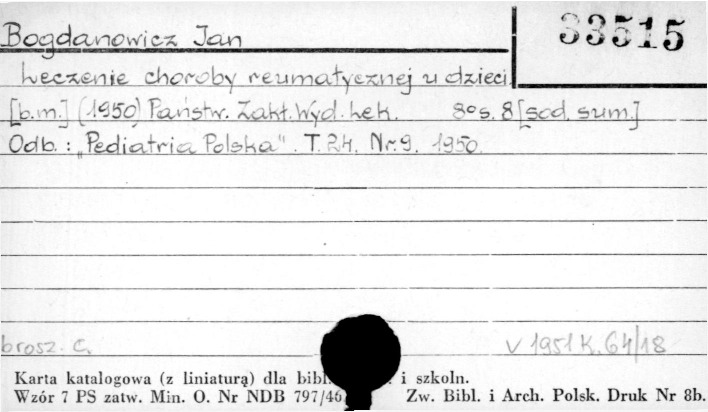 Bogdanowicz Jan
33515
Leczenie choroby reumatycznej u dzieci.
[b.m.] (1950) Państw. Zakł. Wyd. Lek. 8° s. 8 [sod. sum.]
Odb.: „Pediatria Polska". T. 24. Nr. 9. 1950.
brosz. C.
V 1951 K. 64/18
Karta katalogowa (z liniaturą) dla bibl. i szkoln.
Wzór 7 PS zatw. Min. O. Nr NDB 797/46 Zw. Bibl. i Arch. Polsk. Druk Nr 8b.